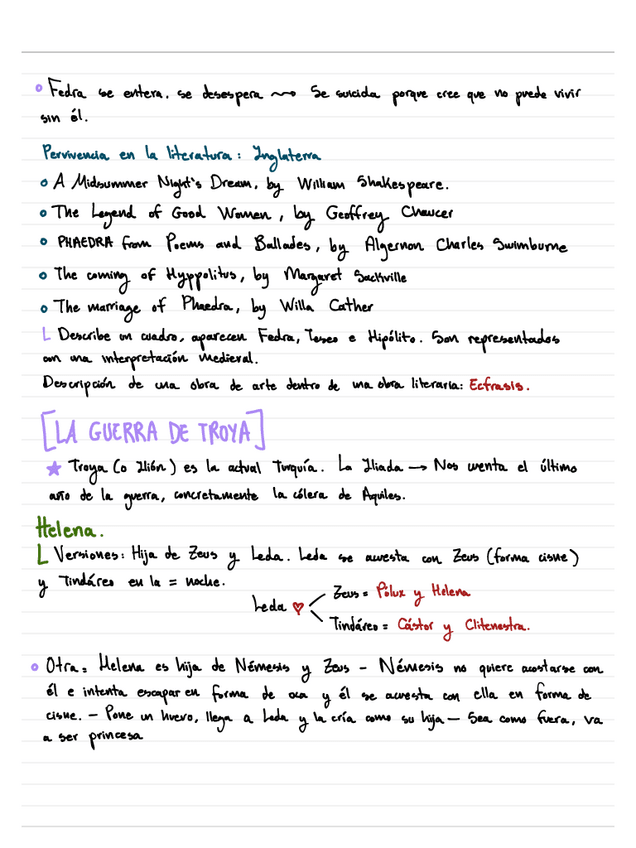 Fedra se entera. se desespera ⟿ Se suicida porque cree que no puede vivir
sin él.
Pervivencia en la literatura: Inglaterra
A Midsummer Night's Dream, by William Shakespeare.
The Legend of Good Women, by Geoffrey Chaucer
PHAEDRA from Poems and Ballades, by Algernon Charles Swimburne
The coming of Hyppolitus, by Margaret Sackville
The marriage of Phaedra, by Willa Cather
Describe un cuadro, aparecen Fedra, Teseo e Hipólito. Son representados
con una interpretación medieval.
Descripción de una obra de arte dentro de una obra literaria: Ecfrasis.
[LA GUERRA DE TROYA]
★ Troya (o Ilión) es la actual Turquía. La Iliada → Nos cuenta el último
año de la guerra, concretamente la cólera de Aquiles.
Helena.
Versiones: Hija de Zeus y Leda. Leda se acuesta con Zeus (forma cisne)
y Tindáreo en la = noche.
Leda ♡
Zeus = Pólux y Helena
Tindáreo = Cástor y Clitenestra.
Otra = Helena es hija de Némesis y Zeus - Némesis no quiere acostarse con
él e intenta escapar en forma de oca y él se acuesta con ella en forma de
cisne. - Pone un huevo, llega a Leda y la cría como su hija - Sea como fuera, va
a ser princesa